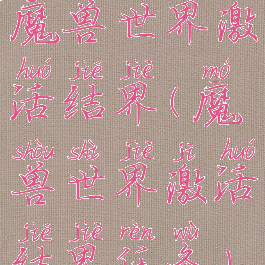 魔兽世界激
huó jié jiè mó
活结界(魔
shòu shì jiè jī huó
兽世界激活
jié jiè rèn wù
结界任务)